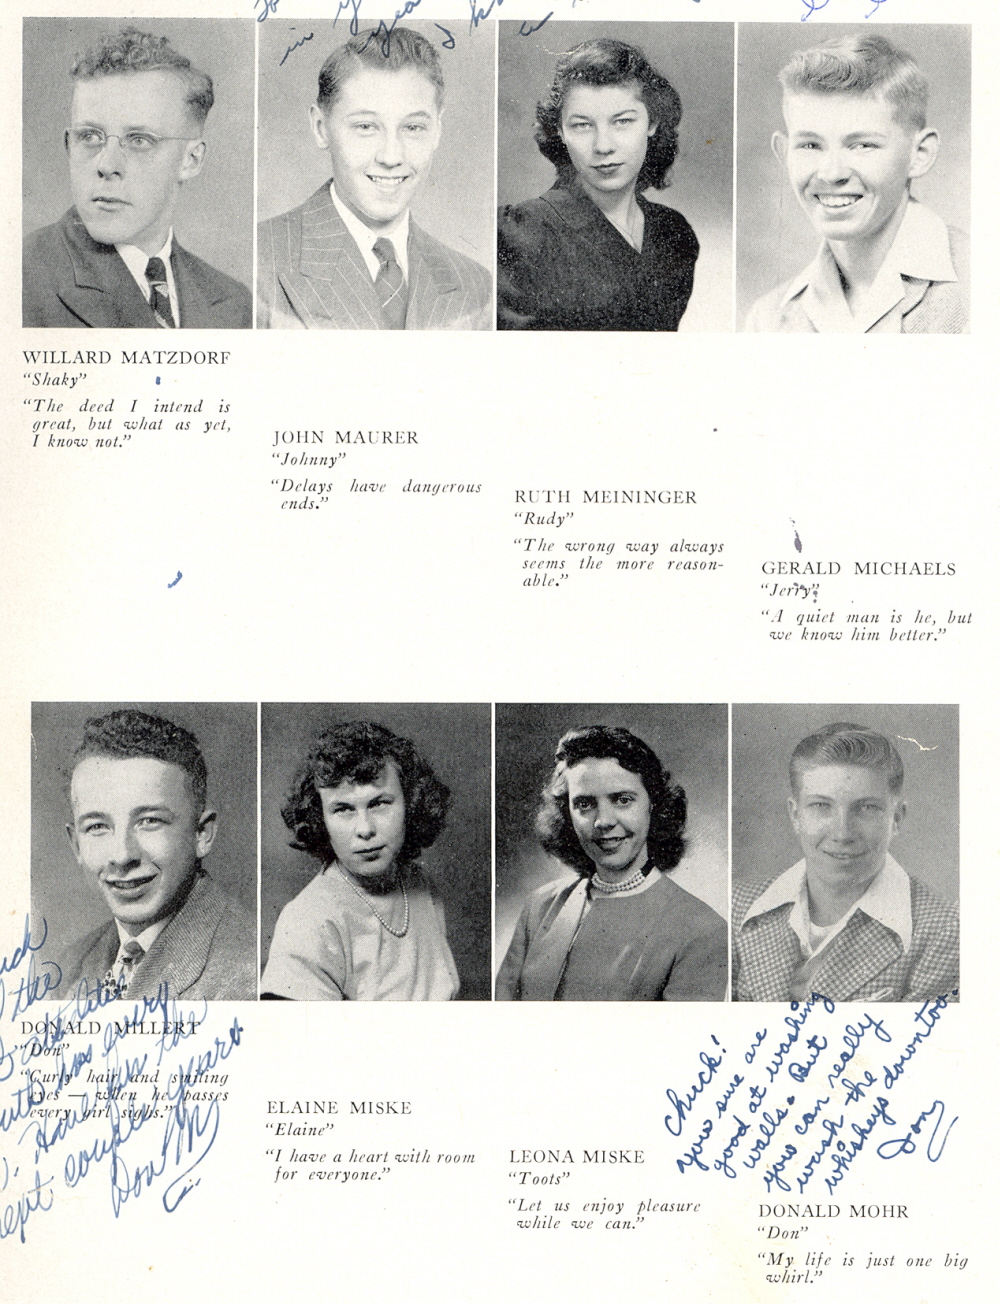 in
year I
WILLARD MATZDORF
“Shaky”
“The deed I intend is
great, but what as yet,
I know not.”
JOHN MAURER
“Johnny”
“Delays have dangerous
ends.”
RUTH MEININGER
“Rudy”
“The wrong way always
seems the more reason-
able.”
GERALD MICHAELS
“Jerry”
“A quiet man is he, but
we know him better.”
DONALD MILLERT
“Don”
“Curly hair and smiling
eyes — when he passes
every girl sighs.”
the
Have fun the
next couple years.
Don M
ELAINE MISKE
“Elaine”
“I have a heart with room
for everyone.”
LEONA MISKE
“Toots”
“Let us enjoy pleasure
while we can.”
Chuck!
you sure are
good at washing
walls. But
you can really
wash the
whiskeys down too.
Don
DONALD MOHR
“Don”
“My life is just one big
whirl.”